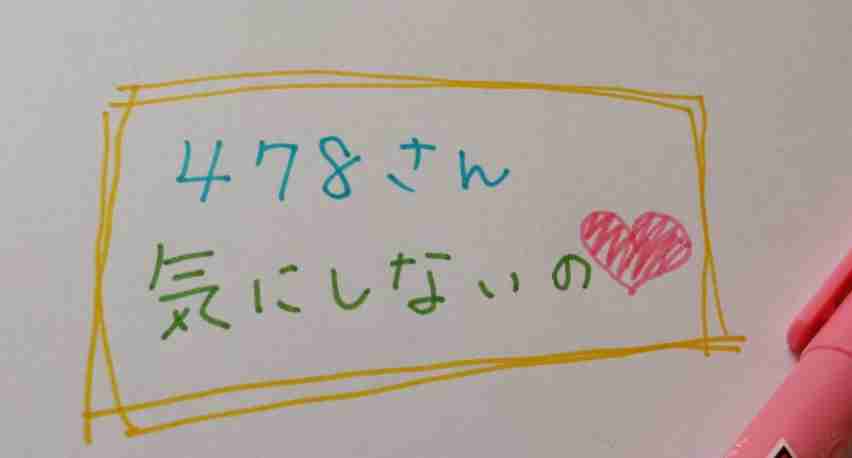 478さん
気にしないの